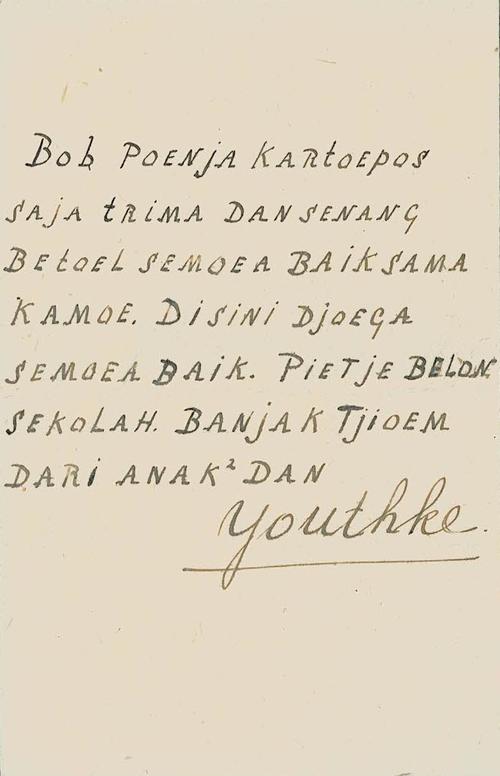 Bob POENJA KARtOEPOS
SAJA tRIMA DAN SENANG
BEtOEL SEMOEA BAIK SAMA
KAMOE. DISINI DJOEGA
SEMOEA BAIK. PIETJE BELON
SEKOLAH. BANJAK TJIOEM
DARI ANAK² DAN
Youthke.